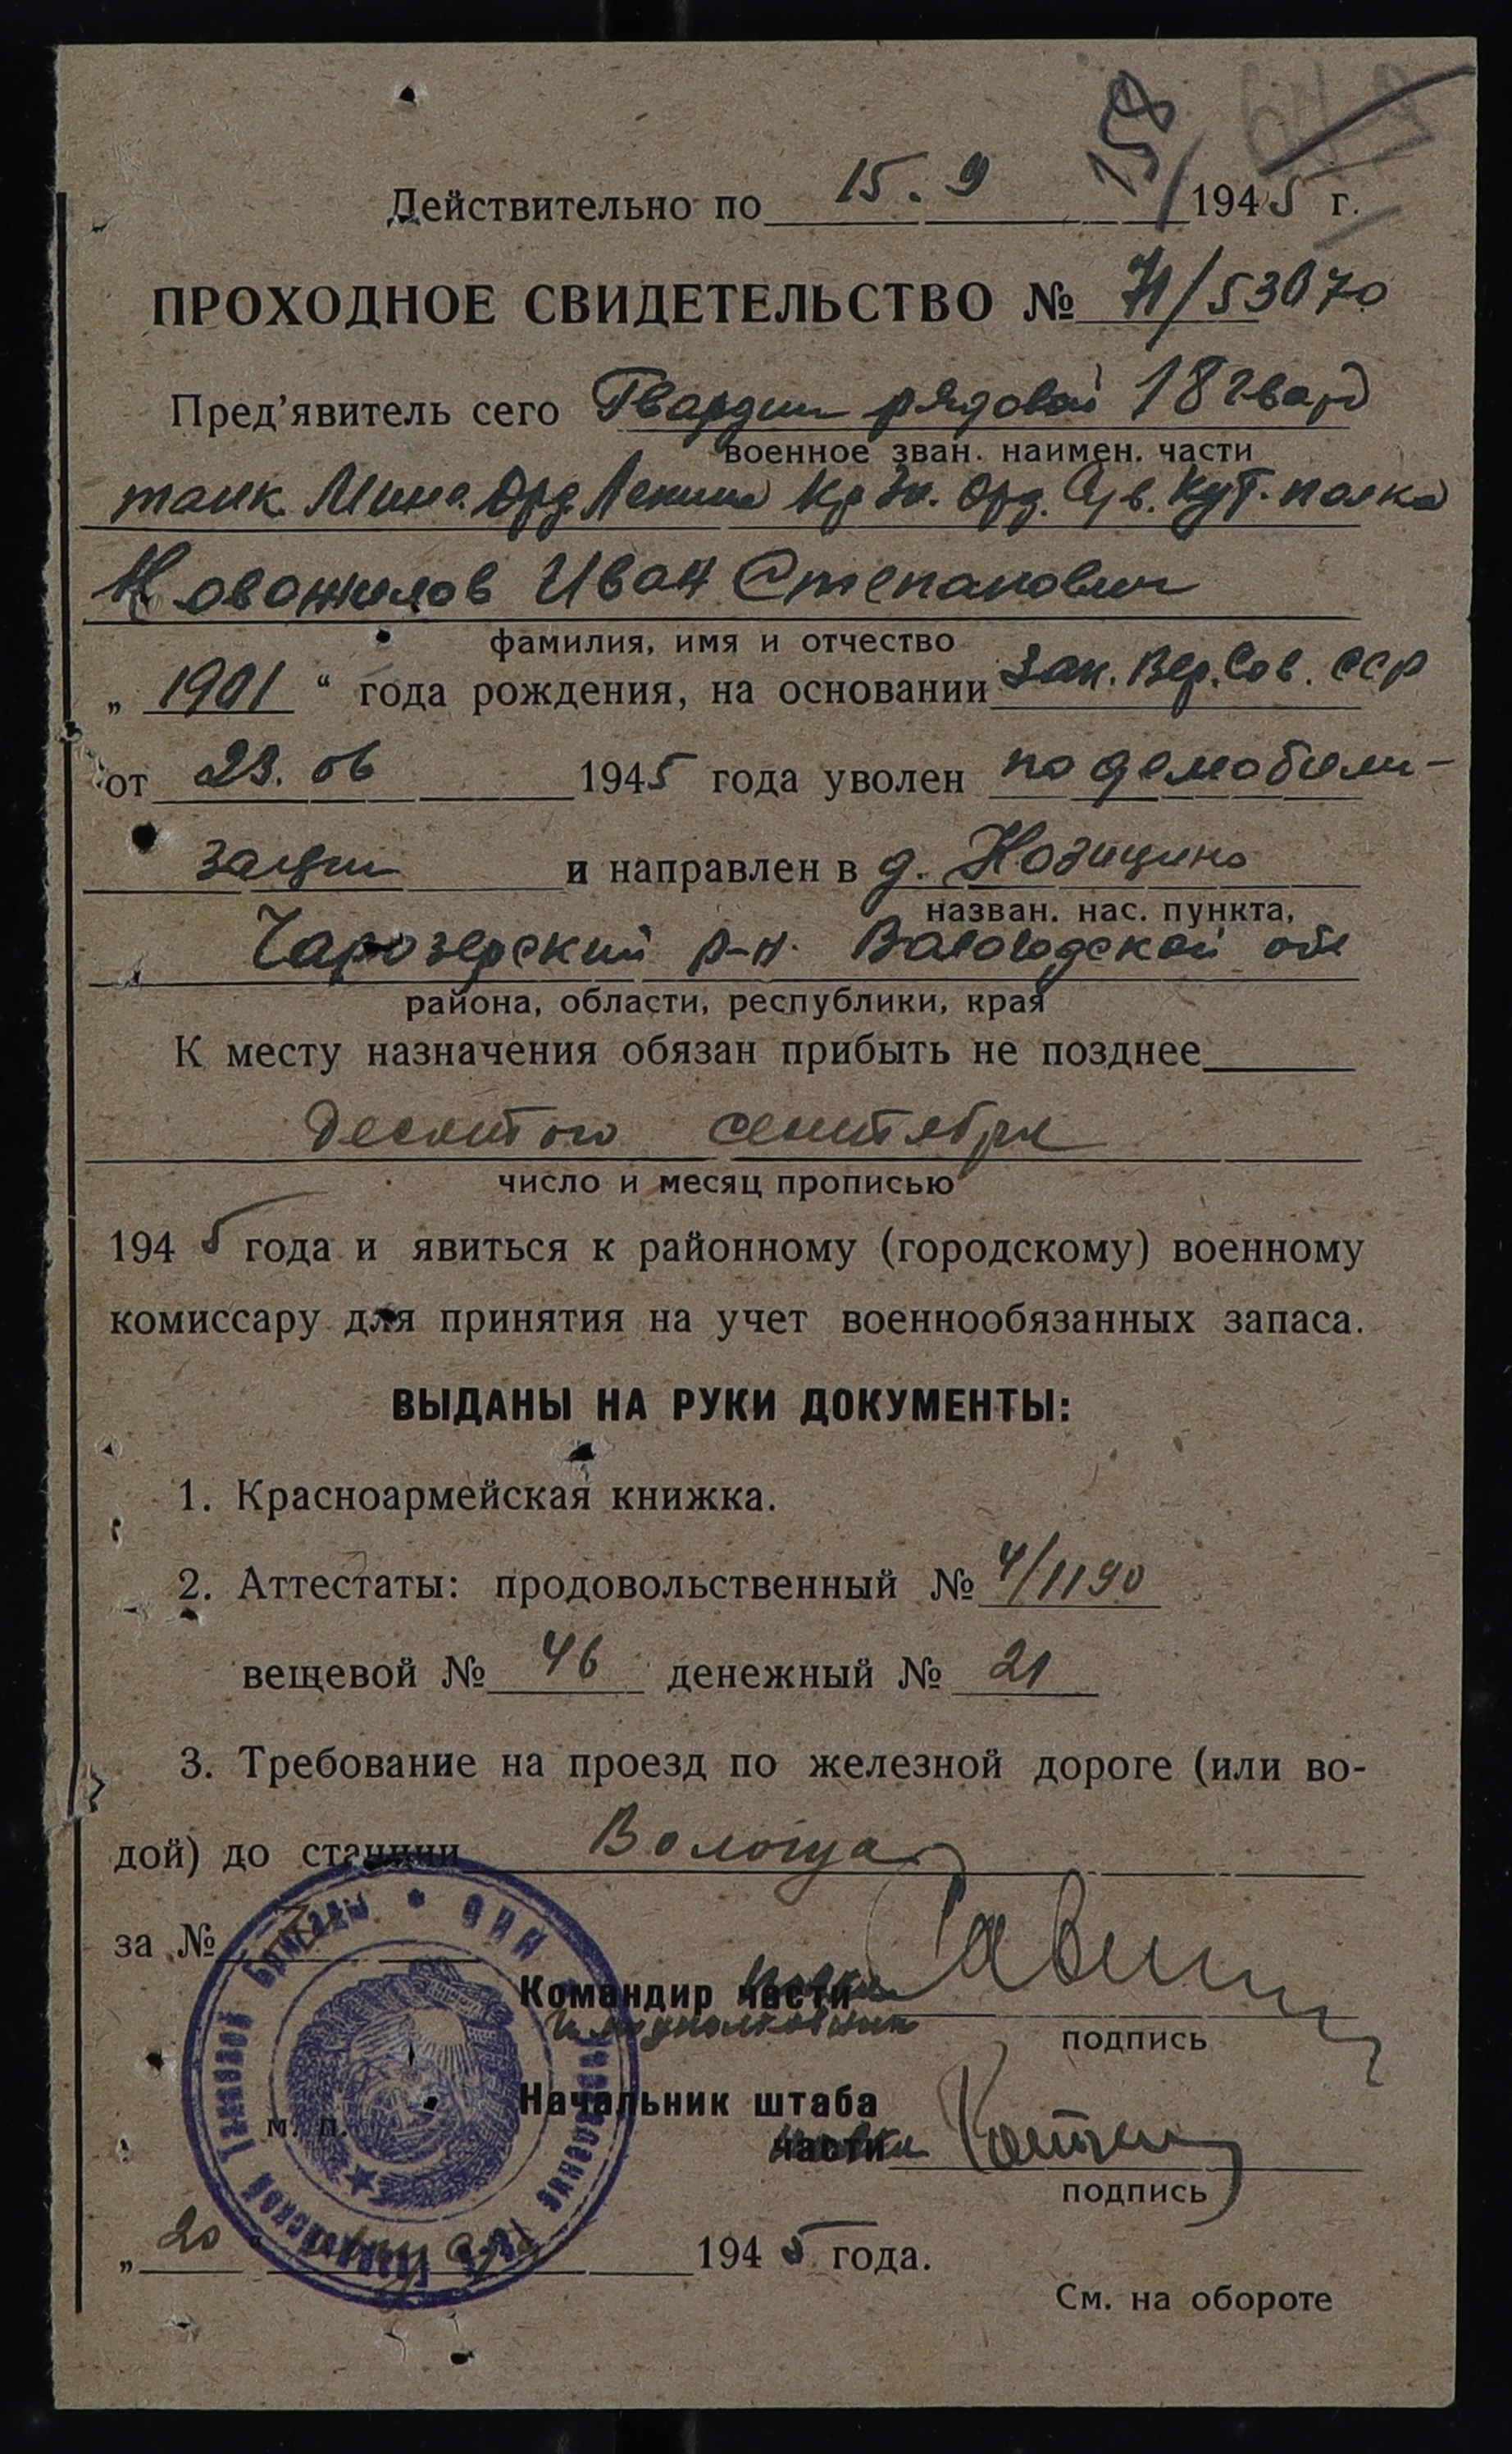 158
Действительно по 15.9 1945 г.
ПРОХОДНОЕ СВИДЕТЕЛЬСТВО № 71/53070
Пред'явитель сего Гвардии рядовой 18 гвард
военное зван. наимен. части
танк. Минс. Орд. Ленина Кр Зн. Орд. Сув. Кут. полка
Новожилов Иван Степанович
фамилия, имя и отчество
„ 1901 “ года рождения, на основании Зак. Вер. Сов. ССР
от 23.06 1945 года уволен по демобили-
зации и направлен в д.
назван. нас. пункта,
Чарозерский р-н. Вологодской обл
района, области, республики, края
К месту назначения обязан прибыть не позднее
десятого сентября
число и месяц прописью
1945 года и явиться к районному (городскому) военному
комиссару для принятия на учет военнообязанных запаса.
ВЫДАНЫ НА РУКИ ДОКУМЕНТЫ:
1. Красноармейская книжка.
2. Аттестаты: продовольственный № 4/1190
вещевой № 46 денежный № 21
3. Требование на проезд по железной дороге (или во-
дой) до станции Вологда
за №
Командир части полка
п/полковник
подпись
Начальник штаба
части полка
м. п.
подпись
„ 20 “ августа 1945 года.
См. на обороте